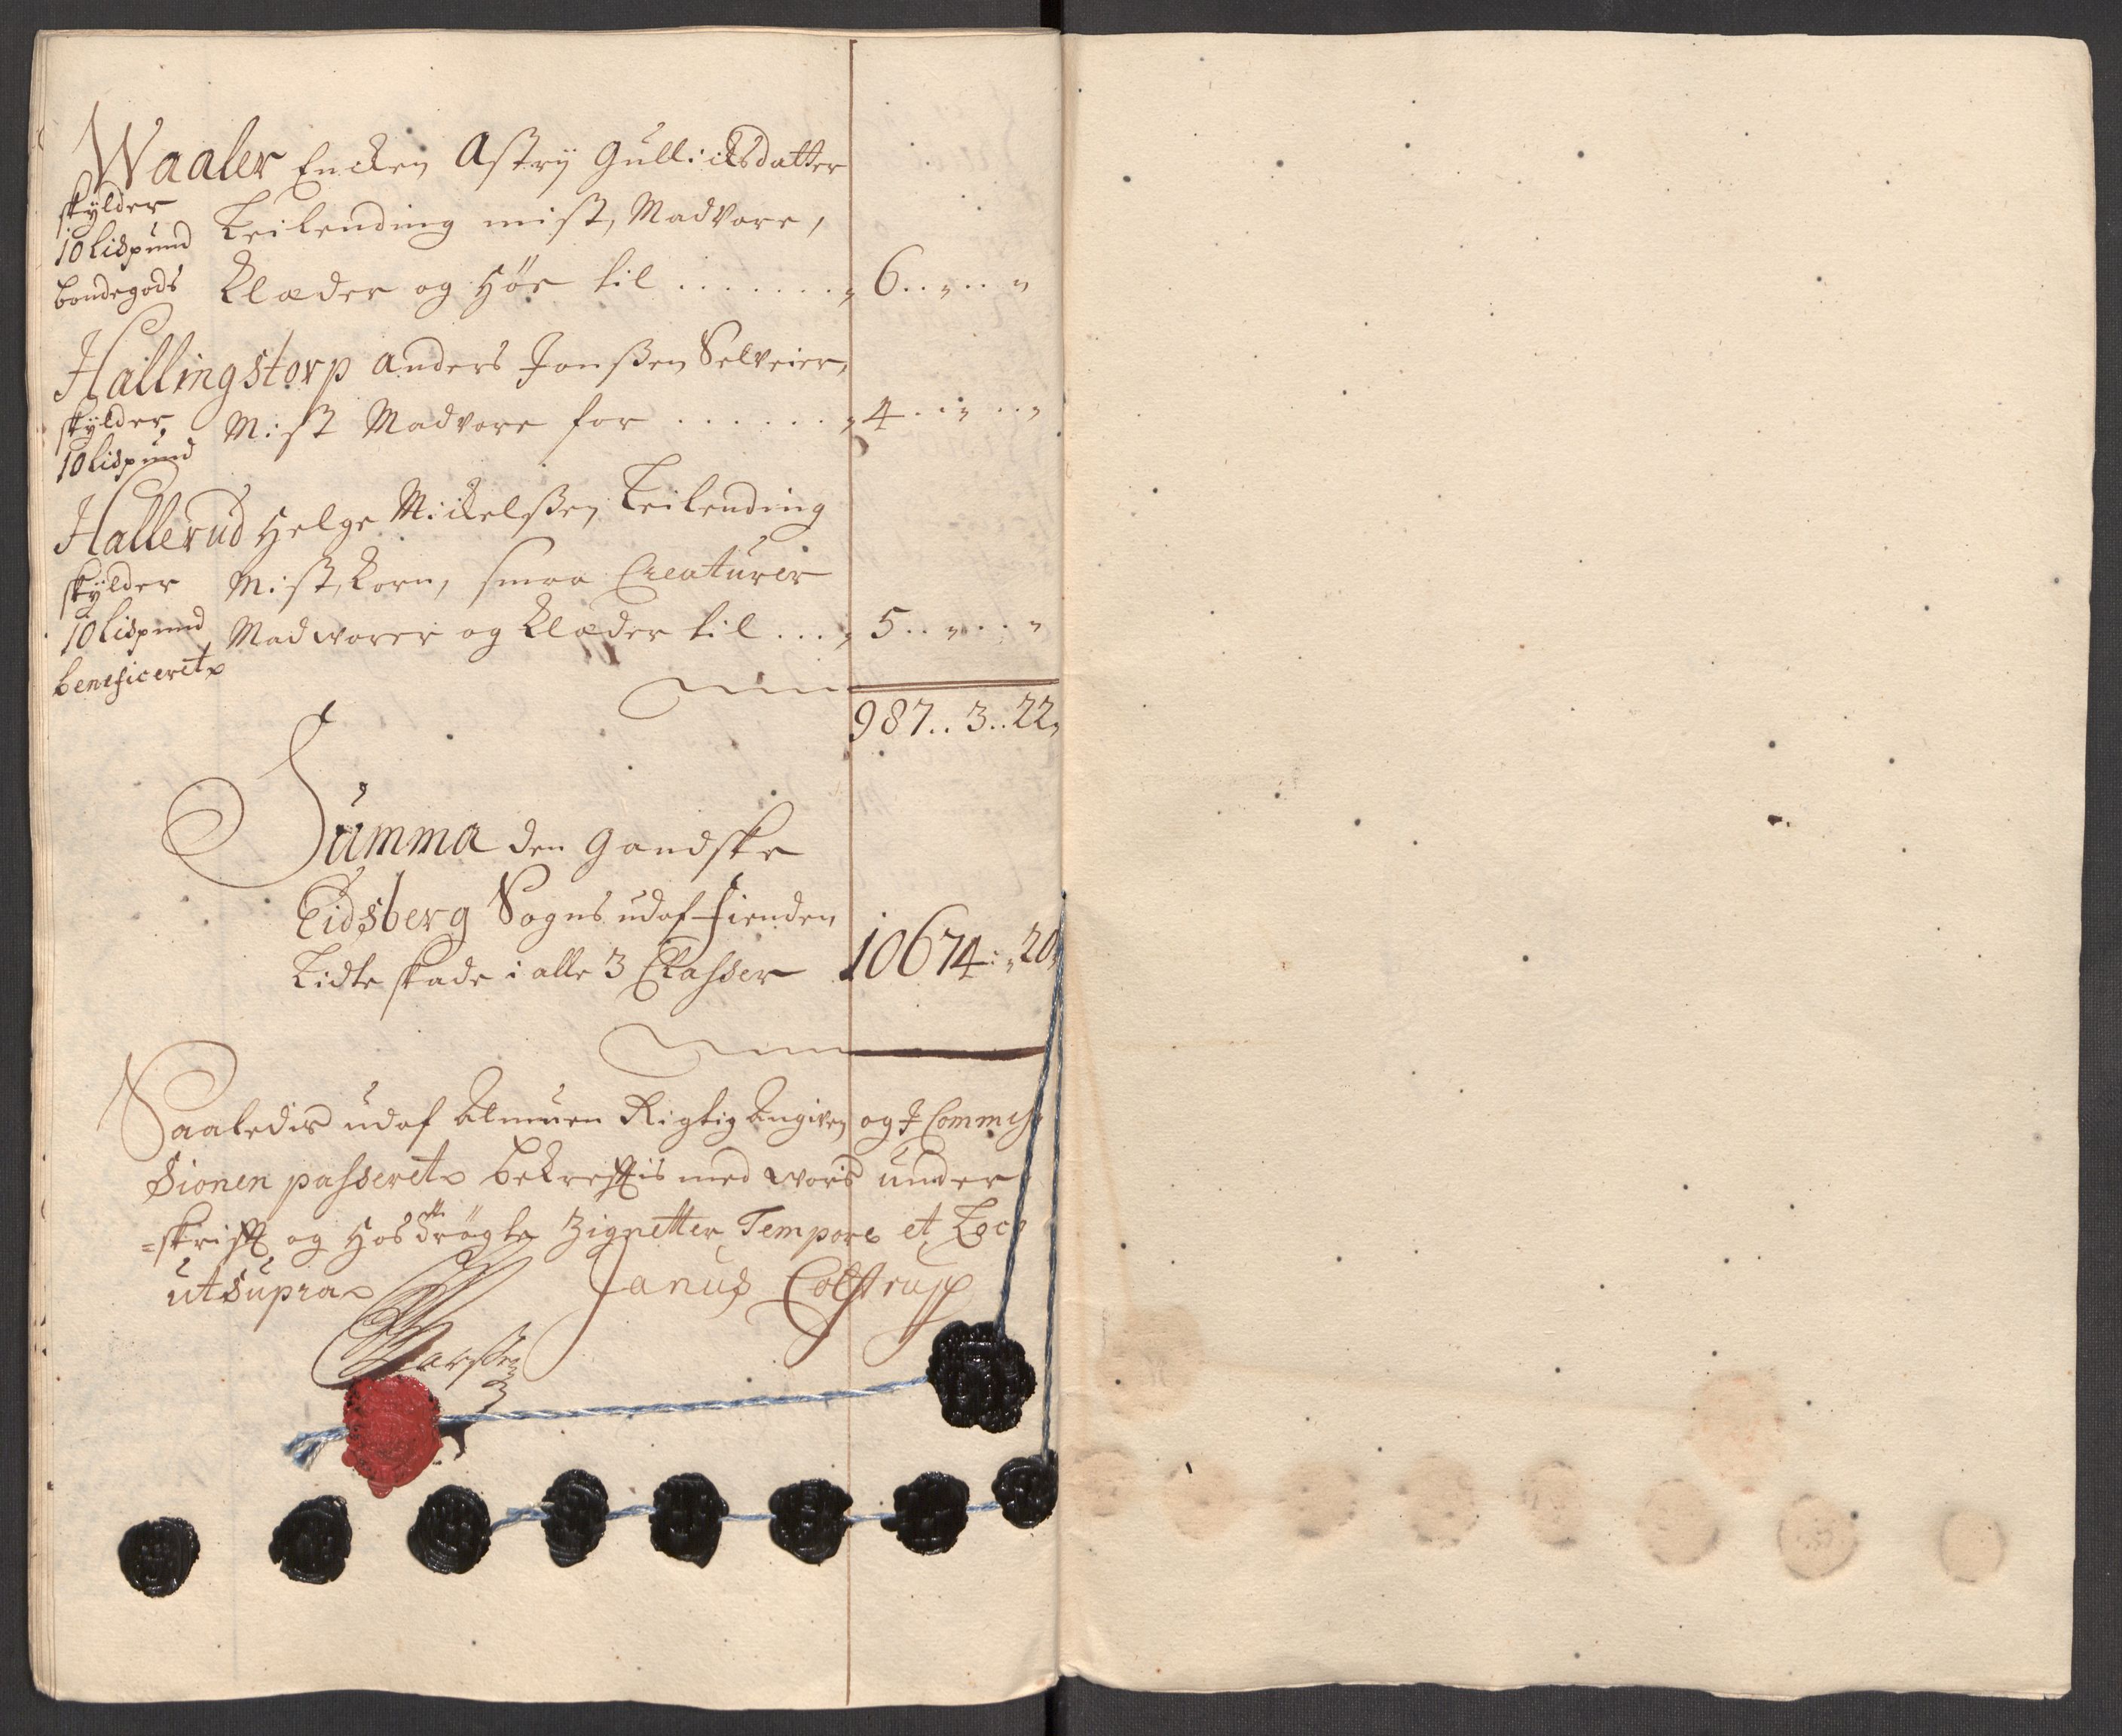 Waaler Encken Astrij Gullicksdatter
skylder
10 Lispund
bondegods
Leilending mist, Madvare,
Klæder og Höe til ....... „ 6..„..„
Hallingstorp Anders Jonssen Selveier,
skylder
10 Lispund
Mist Madvare for ...... „ 4..„..„
Hallerud Helge Mickelssen Leilending
skylder
10 Lispund
beneficeret
Mist, Korn, smaa Creaturer
Madwarer og Klæder til ... „ 5..„..„
987.. 3.. 22„
Summa den gandske
Eidsberg Sogns udaf Fienden
Lidte skade i alle 3 Classer 10674:„ 20„
Saaledis udaf Almuen Rigtig Angiven og J Commis
sionen passeret bekreftis med wores under
=skrift og Hos Zignetter Tempore et Loco
ut supra
Janus Colstrupp